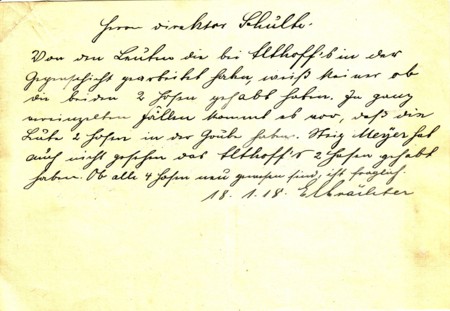 Herrn Direktor Schulte.
Von den Leuten die bei Elthoff's in der
Gegenschicht gearbeitet haben, weiß keiner ob
die beiden 2 Hosen gehabt haben. In ganz
vereinzelten Fällen kommt es vor, daß die
Leute 2 Hosen in der Grube haben. Steig Meyer hat
auch nicht gesehen das Elthoff's 2 Hosen gehabt
haben. Ob alle 4 Hosen neu gewesen sind, ist fraglich.
18.1.18.